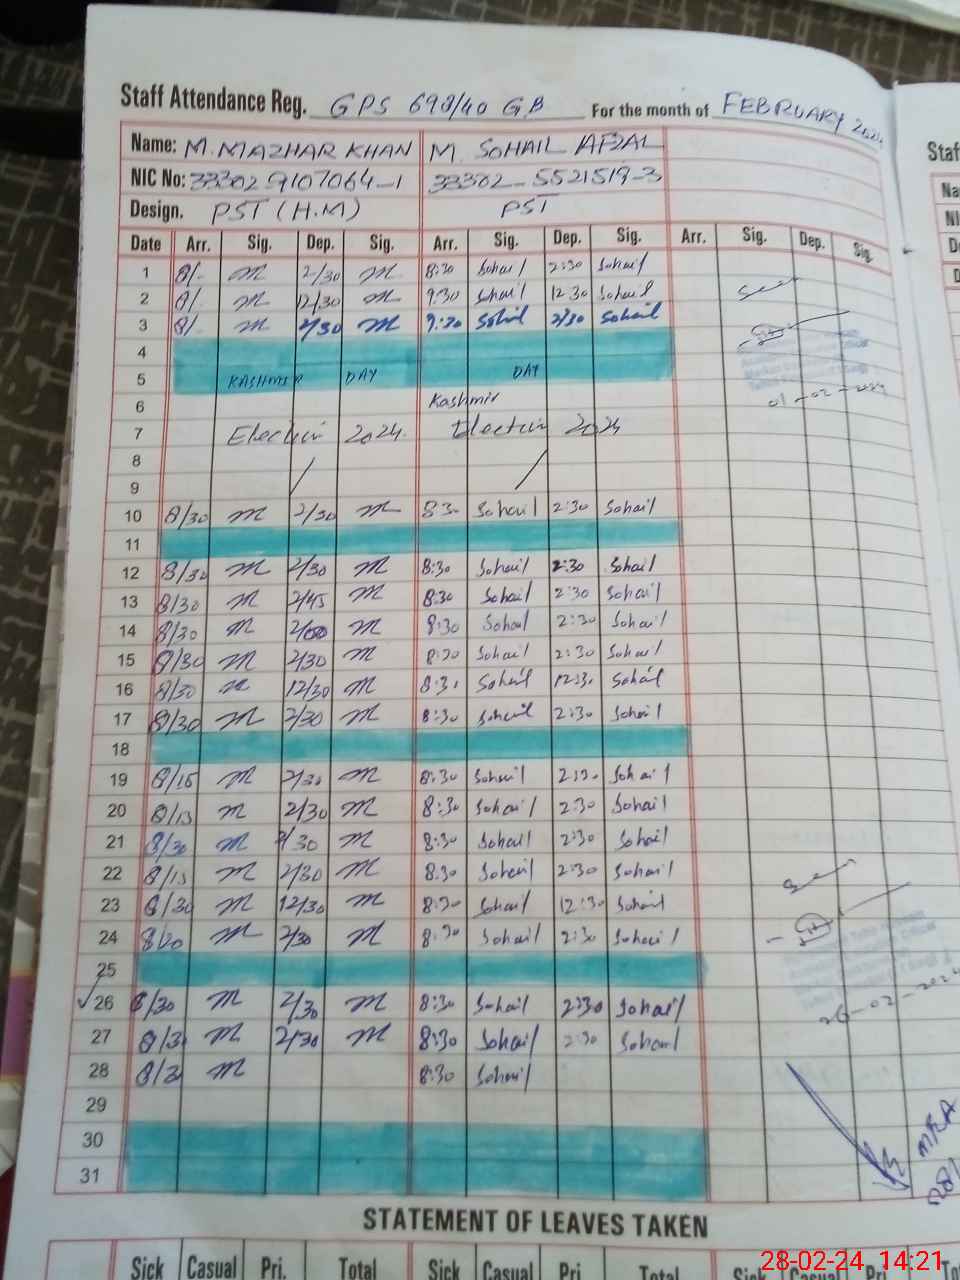 Staff Attendance Reg. GPS 698/40 GB For the month of FEBRUARY 2024
Name: M. MAZHAR KHAN M. SOHAIL AFZAL
NIC No: 33302 9107064-1 33302-5521519-3
Design. PST (H.M) PST
Date Arr. Sig. Dep. Sig. Arr. Sig. Dep. Sig. Arr. Sig. Dep. Sig.
1 8/- m 2/30 m 8:30 Sohail 2:30 Sohail
2 8/- m 12/30 m 9:30 Sohail 12:30 Sohail
3 8/- m 2/30 m 9:30 Sohail 2/30 Sohail
4
5 KASHMIR DAY DAY
6 Kashmir
7 Election 2024. Election 2024
8
9
10 8/30 m 2/30 m 8:30 Sohail 2:30 Sohail
11
12 8/30 m 2/30 m 8:30 Sohail 2:30 Sohail
13 8/30 m 2/45 m 8:30 Sohail 2:30 Sohail
14 8/30 m 2/00 m 8:30 Sohail 2:30 Sohail
15 8/30 m 2/30 m 8:30 Sohail 2:30 Sohail
16 8/30 m 12/30 m 8:30 Sohail 12:30 Sohail
17 8/30 m 2/30 m 8:30 Sohail 2:30 Sohail
18
19 8/15 m 2/30 m 8:30 Sohail 2:30 Sohail
20 8/15 m 2/30 m 8:30 Sohail 2:30 Sohail
21 8/30 m 2/30 m 8:30 Sohail 2:30 Sohail
22 8/15 m 2/30 m 8:30 Sohail 2:30 Sohail
23 8/30 m 12/30 m 8:30 Sohail 12:30 Sohail
24 8/20 m 2/30 m 8:30 Sohail 2:30 Sohail
25
26 8/30 m 2/30 m 8:30 Sohail 2:30 Sohail
27 8/3 m 2/30 m 8:30 Sohail 2:30 Sohail
28 8/3 m 8:30 Sohail
29
30
31
Seen
01-02-2024
Seen
26-02-2024
MEA
28/
STATEMENT OF LEAVES TAKEN
Sick Casual Pri. Total Sick Casual Pri. Total Sick Casual Pri.
28-02-24 14:21